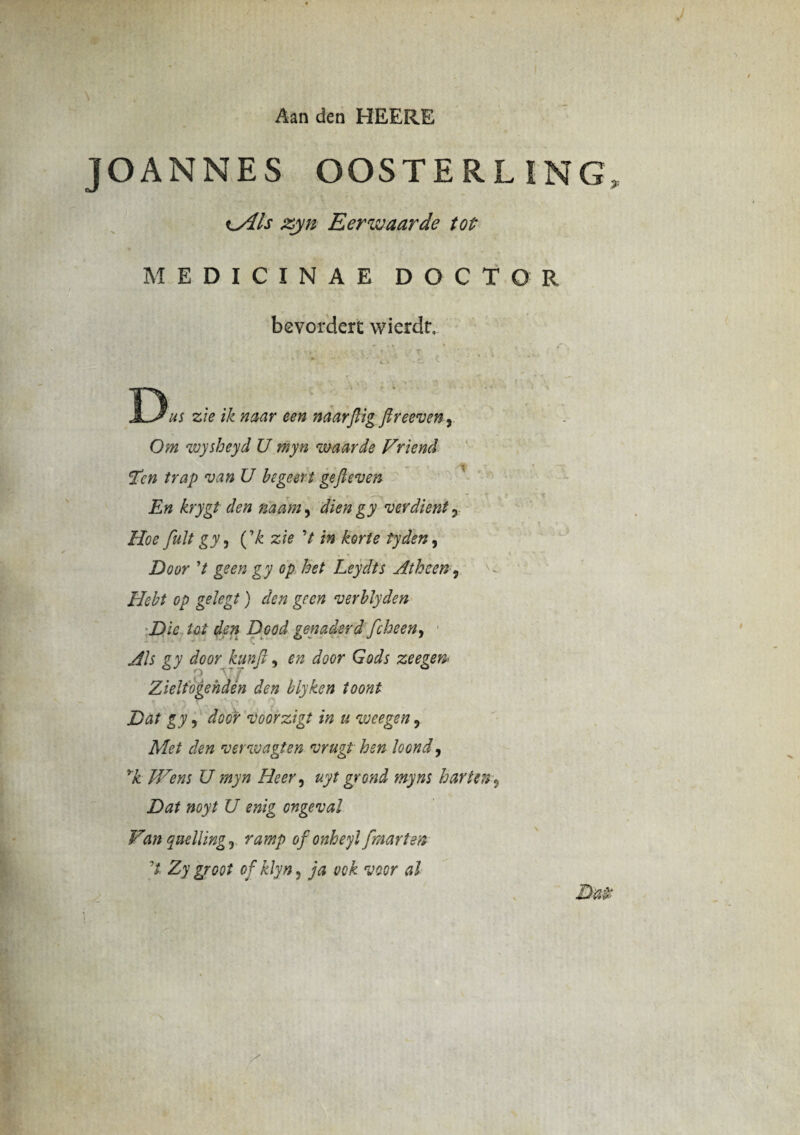 Aan den HEERE
JOANNES OOSTERLING,
Als zyn Eerwaarde tot
MEDICINAE DOCTOR
bevordert wierdt.
Dus zie ik naar een naarſtig ſtreeven,
Om wysheyd U myn waarde Vriend
Ten trap van U begeert geſteven
En krygt den naam, dien gy verdient,
Hoe ſult gy, ('k zie 't in korte tyden,
Door 't geen gy op het Leydts Atheen,
Hebt op gelegt) den geen verblyden
Die tot den Dood genaderd ſcheen,
Als gy door kunſt, en door Gods zeegen
Zieltogenden den blyken toont
Dat gy, door voorzigt in u weegen,
Met den verwagten vrugt hen loond,
'k Wens U myn Heer, uyt grond myns harten,
Dat noyt U enig ongeval
Van quelling, ramp of onheyl ſmarten
't Zy groot of klyn, ja ook voor al
Dat